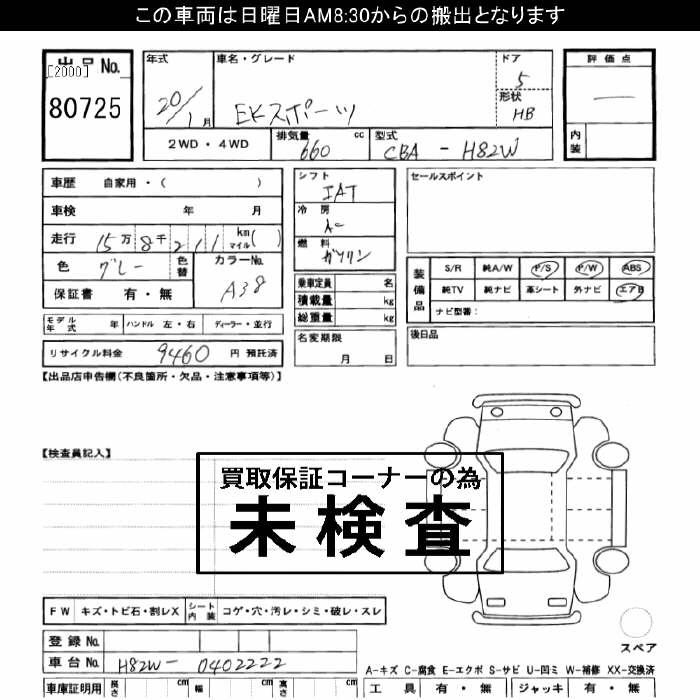 この車両は日曜日AM8:30からの搬出となります
出品No.
[2000]
80725
年式
20/1月
車名・グレード
EKスポーツ
ドア
5
形状
HB
評価点
—
内装
2WD・4WD
排気量
660 cc
型式
CBA - H82W
車歴 自家用・( )
車検 年 月
走行 15万8千211 km マイル( )
色 グレー 色替
カラーNo.
A38
保証書 有・無
シフト
IAT
冷房
燃料
ガソリン
セールスポイント
装備品
S/R 純A/W P/S P/W ABS
純TV 純ナビ 革シート 外ナビ エアB
ナビ型番:
乗車定員 名
積載量 kg
総重量 kg
モデル年式 年 ハンドル 左・右 ディーラー・並行
リサイクル料金 9460 円 預託済
名変期限
月 日
後日品
【出品店申告欄(不良箇所・欠品・注意事項等)】
【検査員記入】
買取保証コーナーの為
未検査
FW キズ・トビ石・割レX シート内装 コゲ・穴・汚レ・シミ・破レ・スレ
登録No.
車台No. H82W- 0402222
スペア
A-キズ C-腐食 E-エクボ S-サビ U-凹ミ W-補修 XX-交換済
車庫証明用 長さ cm 幅 cm 高さ cm
工具 有・無 ジャッキ 有・無